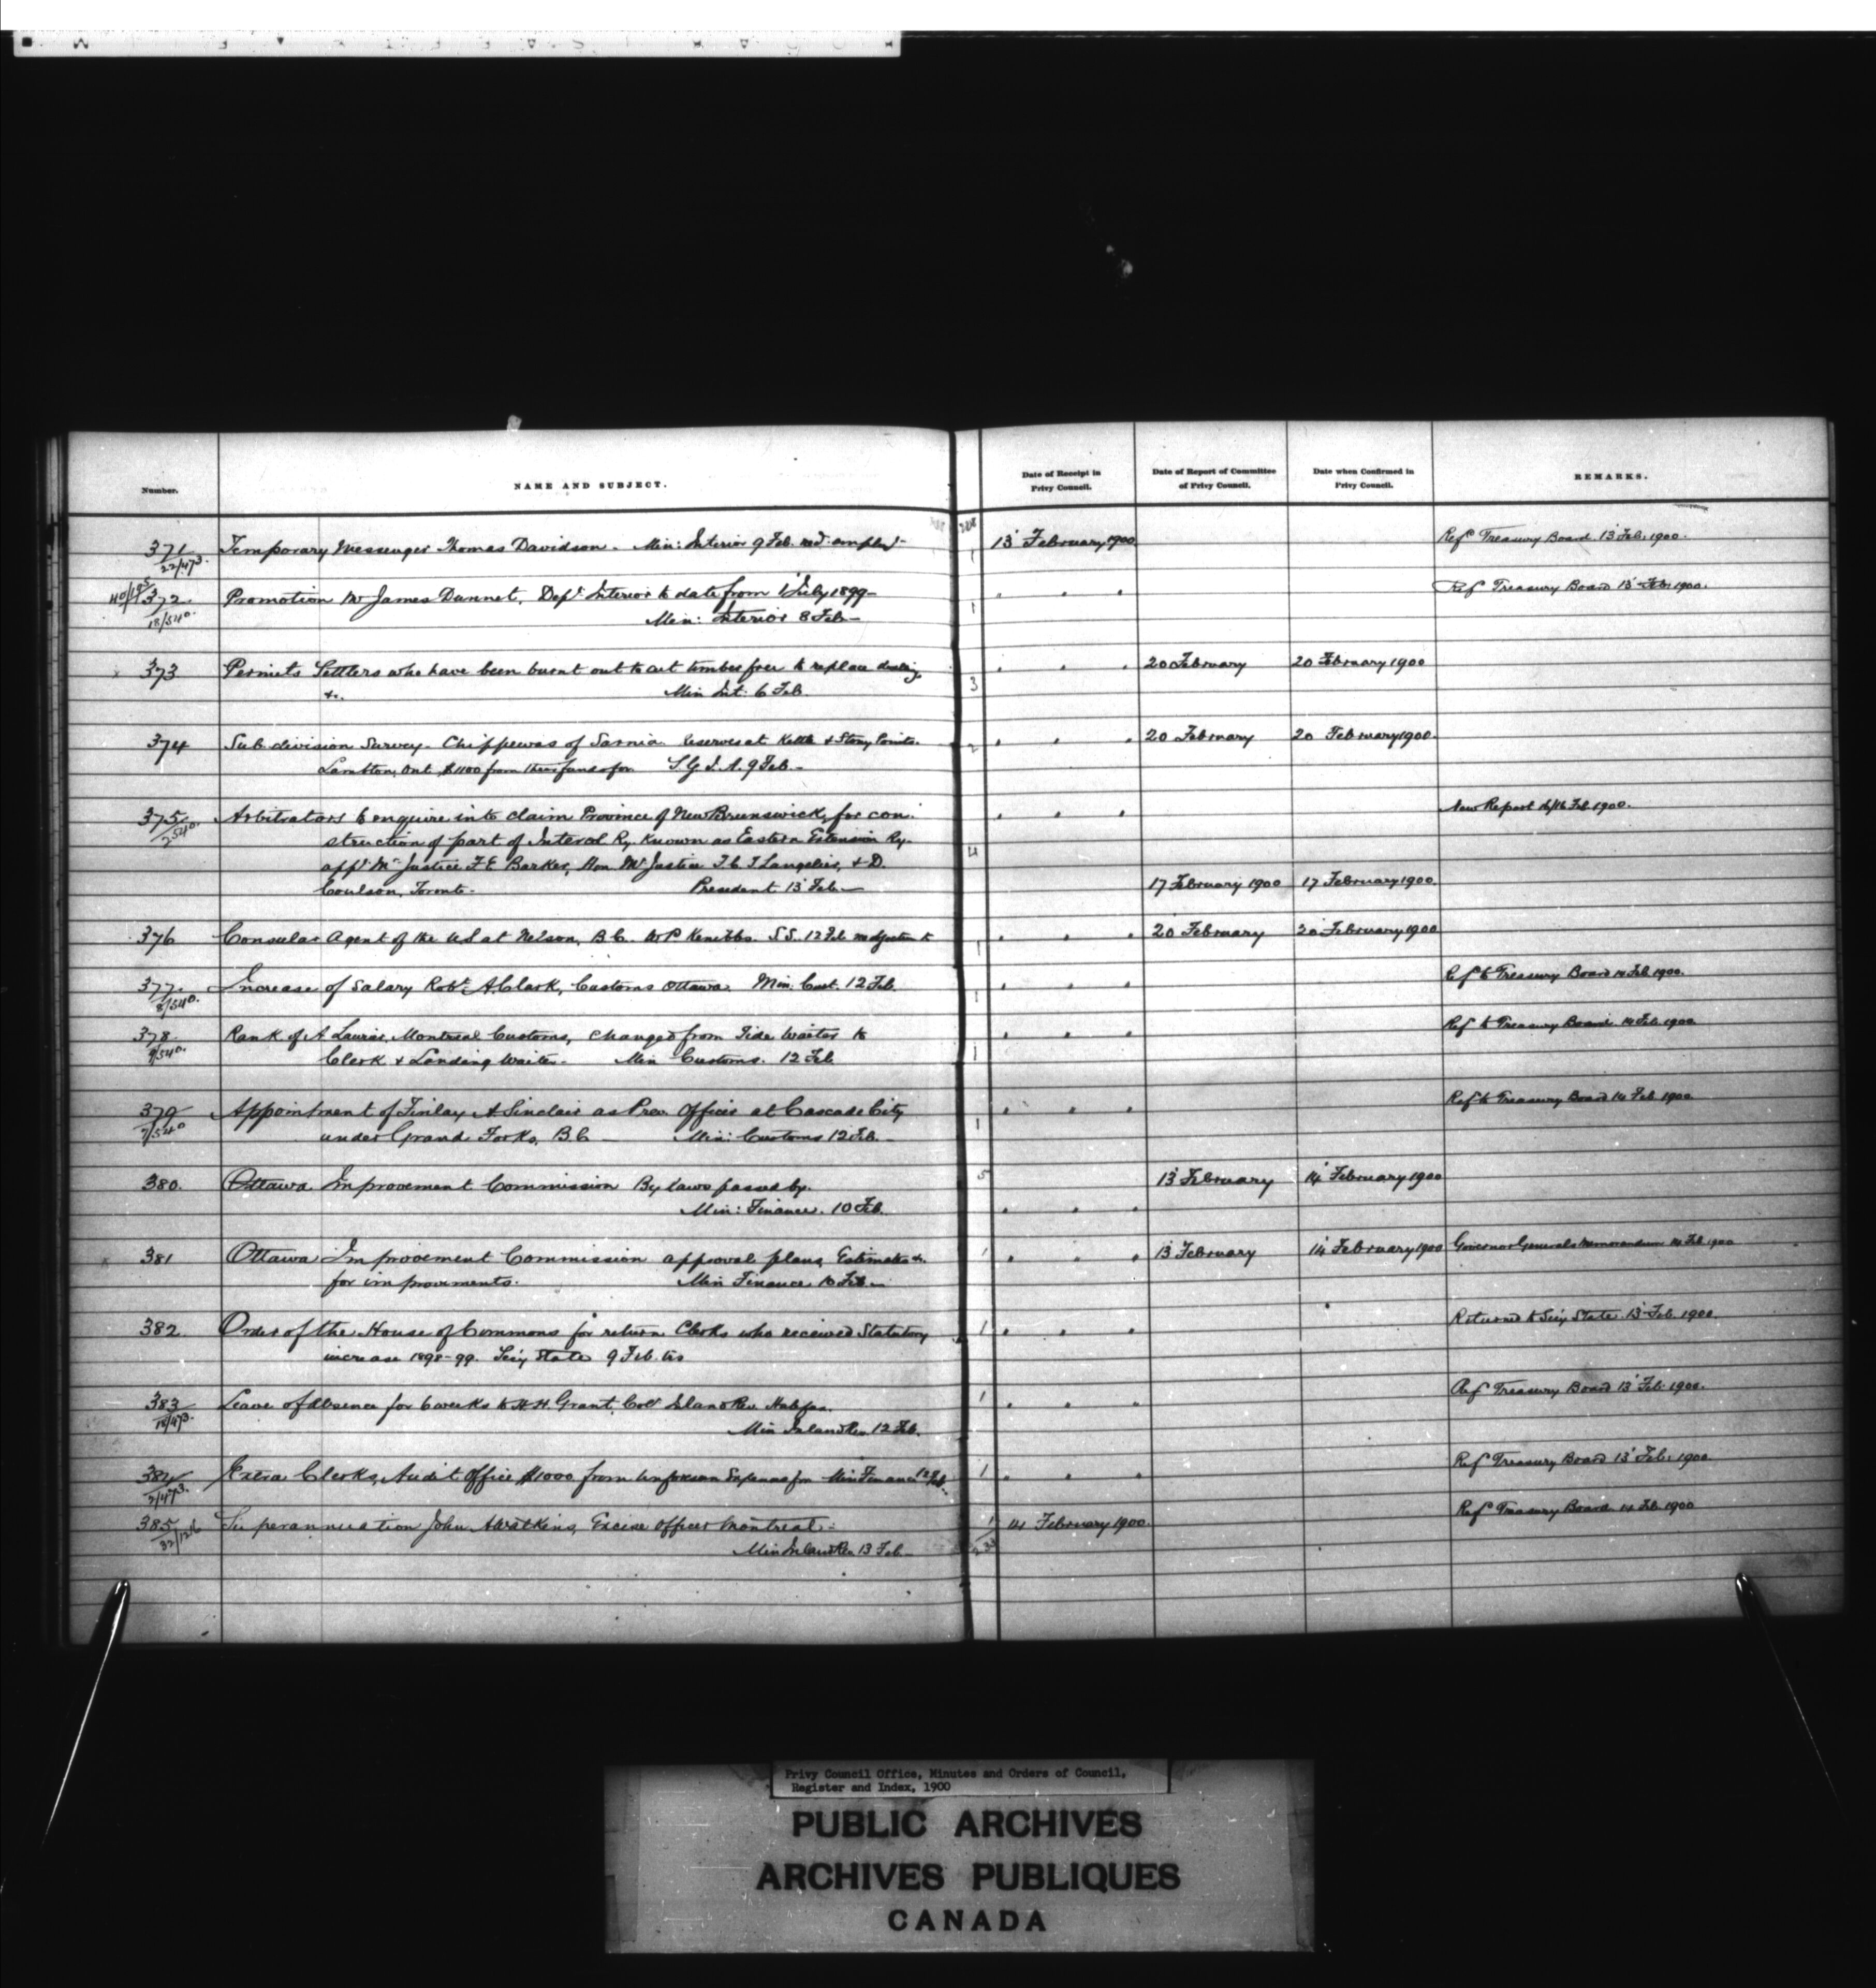 Number.
NAME AND SUBJECT.
Date of Receipt in
Privy Council.
Date of Report of Committee
of Privy Council.
Date when Confirmed in
Privy Council.
REMARKS.
371 Temporary Messenger Thomas Davidson - Min: Interior 9 Feb. 1 13 February 1900 Ref Treasury Board 13 Feb. 1900.
22/473.
372 Promotion Mr James Dunnet, Dept Interior to date from 1 July 1899- 1 " " " Ref Treasury Board 13 Feb. 1900.
18/540. Min: Interior 8 Feb-
373 Permits Settlers who have been burnt out to cut timber free to replace " " " 20 February 20 February 1900
&c. Min Int: 6 Feb 3
374 Sub division Survey - Chippewas of Sarnia Reserves at Kettle & Stony Points. 2 " " " 20 February 20 February 1900.
Lambton, Ont $1100 from their funds for S.G.I.A. 9 Feb-
375 Arbitrators to enquire into claim Province of New Brunswick, for con: " " " New Report 16 Feb 1900.
2540. struction of part of Intercol Ry. Known as Eastern Extension Ry.
appt Mr Justice F E Barker, Hon Mr Justice Langelier, & D. 4
Coulson, Toronto - President 13 Feb- 17 February 1900 17 February 1900.
376 Consular Agent of the US at Nelson, B.C. W P Kenibbs. S.S. 12 Feb 1 " " " 20 February 20 February 1900
377. Increase of Salary Robt. A. Clark, Customs Ottawa. Min. Cust. 12 Feb. 1 " " " Ref to Treasury Board 14 Feb 1900.
8/540.
378 Rank of A Laurier, Montreal Customs, changed from Tide Waiter to " " " Ref to Treasury Board 14 Feb 1900
9/540. Clerk & Landing Waiter - Min Customs. 12 Feb 1
379 Appointment of Finlay A Sinclair as Prev. Officer at Cascade City 1 " " " Ref to Treasury Board 14 Feb 1900
7/540 under Grand Forks, B.C - Min: Customs 12 Feb. -
380. Ottawa Improvement Commission By Laws passed by. 5 13 February 14 February 1900
Min: Finance. 10 Feb. " " "
381 Ottawa Improvement Commission approval plans, Estimates &c. 1 " " " 13 February 14 February 1900 Governor General's Memorandum 14 Feb 1900
for improvements. Min Finance 10 Feb -
382 Order of the House of Commons for return Clerks who received Statutory 1 " " " Returned to Secy State 13 Feb. 1900.
increase 1898-99. Secy State 9 Feb
383 Leave of absence for 6 weeks to H.H. Grant, Collr Inland Rev. Halifax. 1 " " " Ref Treasury Board 13 Feb. 1900.
18/473. Min Inland Rev. 12 Feb.
384 Extra Clerks, Audit Office $1000 from Unforeseen Expenses for Min Finance 12 Feb. 1 " " " Ref Treasury Board 13 Feb. 1900
2/473.
385 Superannuation John A Watkins, Excise Officer Montreal - 1 14 February 1900. Ref Treasury Board 14 Feb 1900
32/1216 Min Inland Rev 13 Feb -
Privy Council Office, Minutes and Orders of Council,
Register and Index, 1900
PUBLIC ARCHIVES
ARCHIVES PUBLIQUES
CANADA